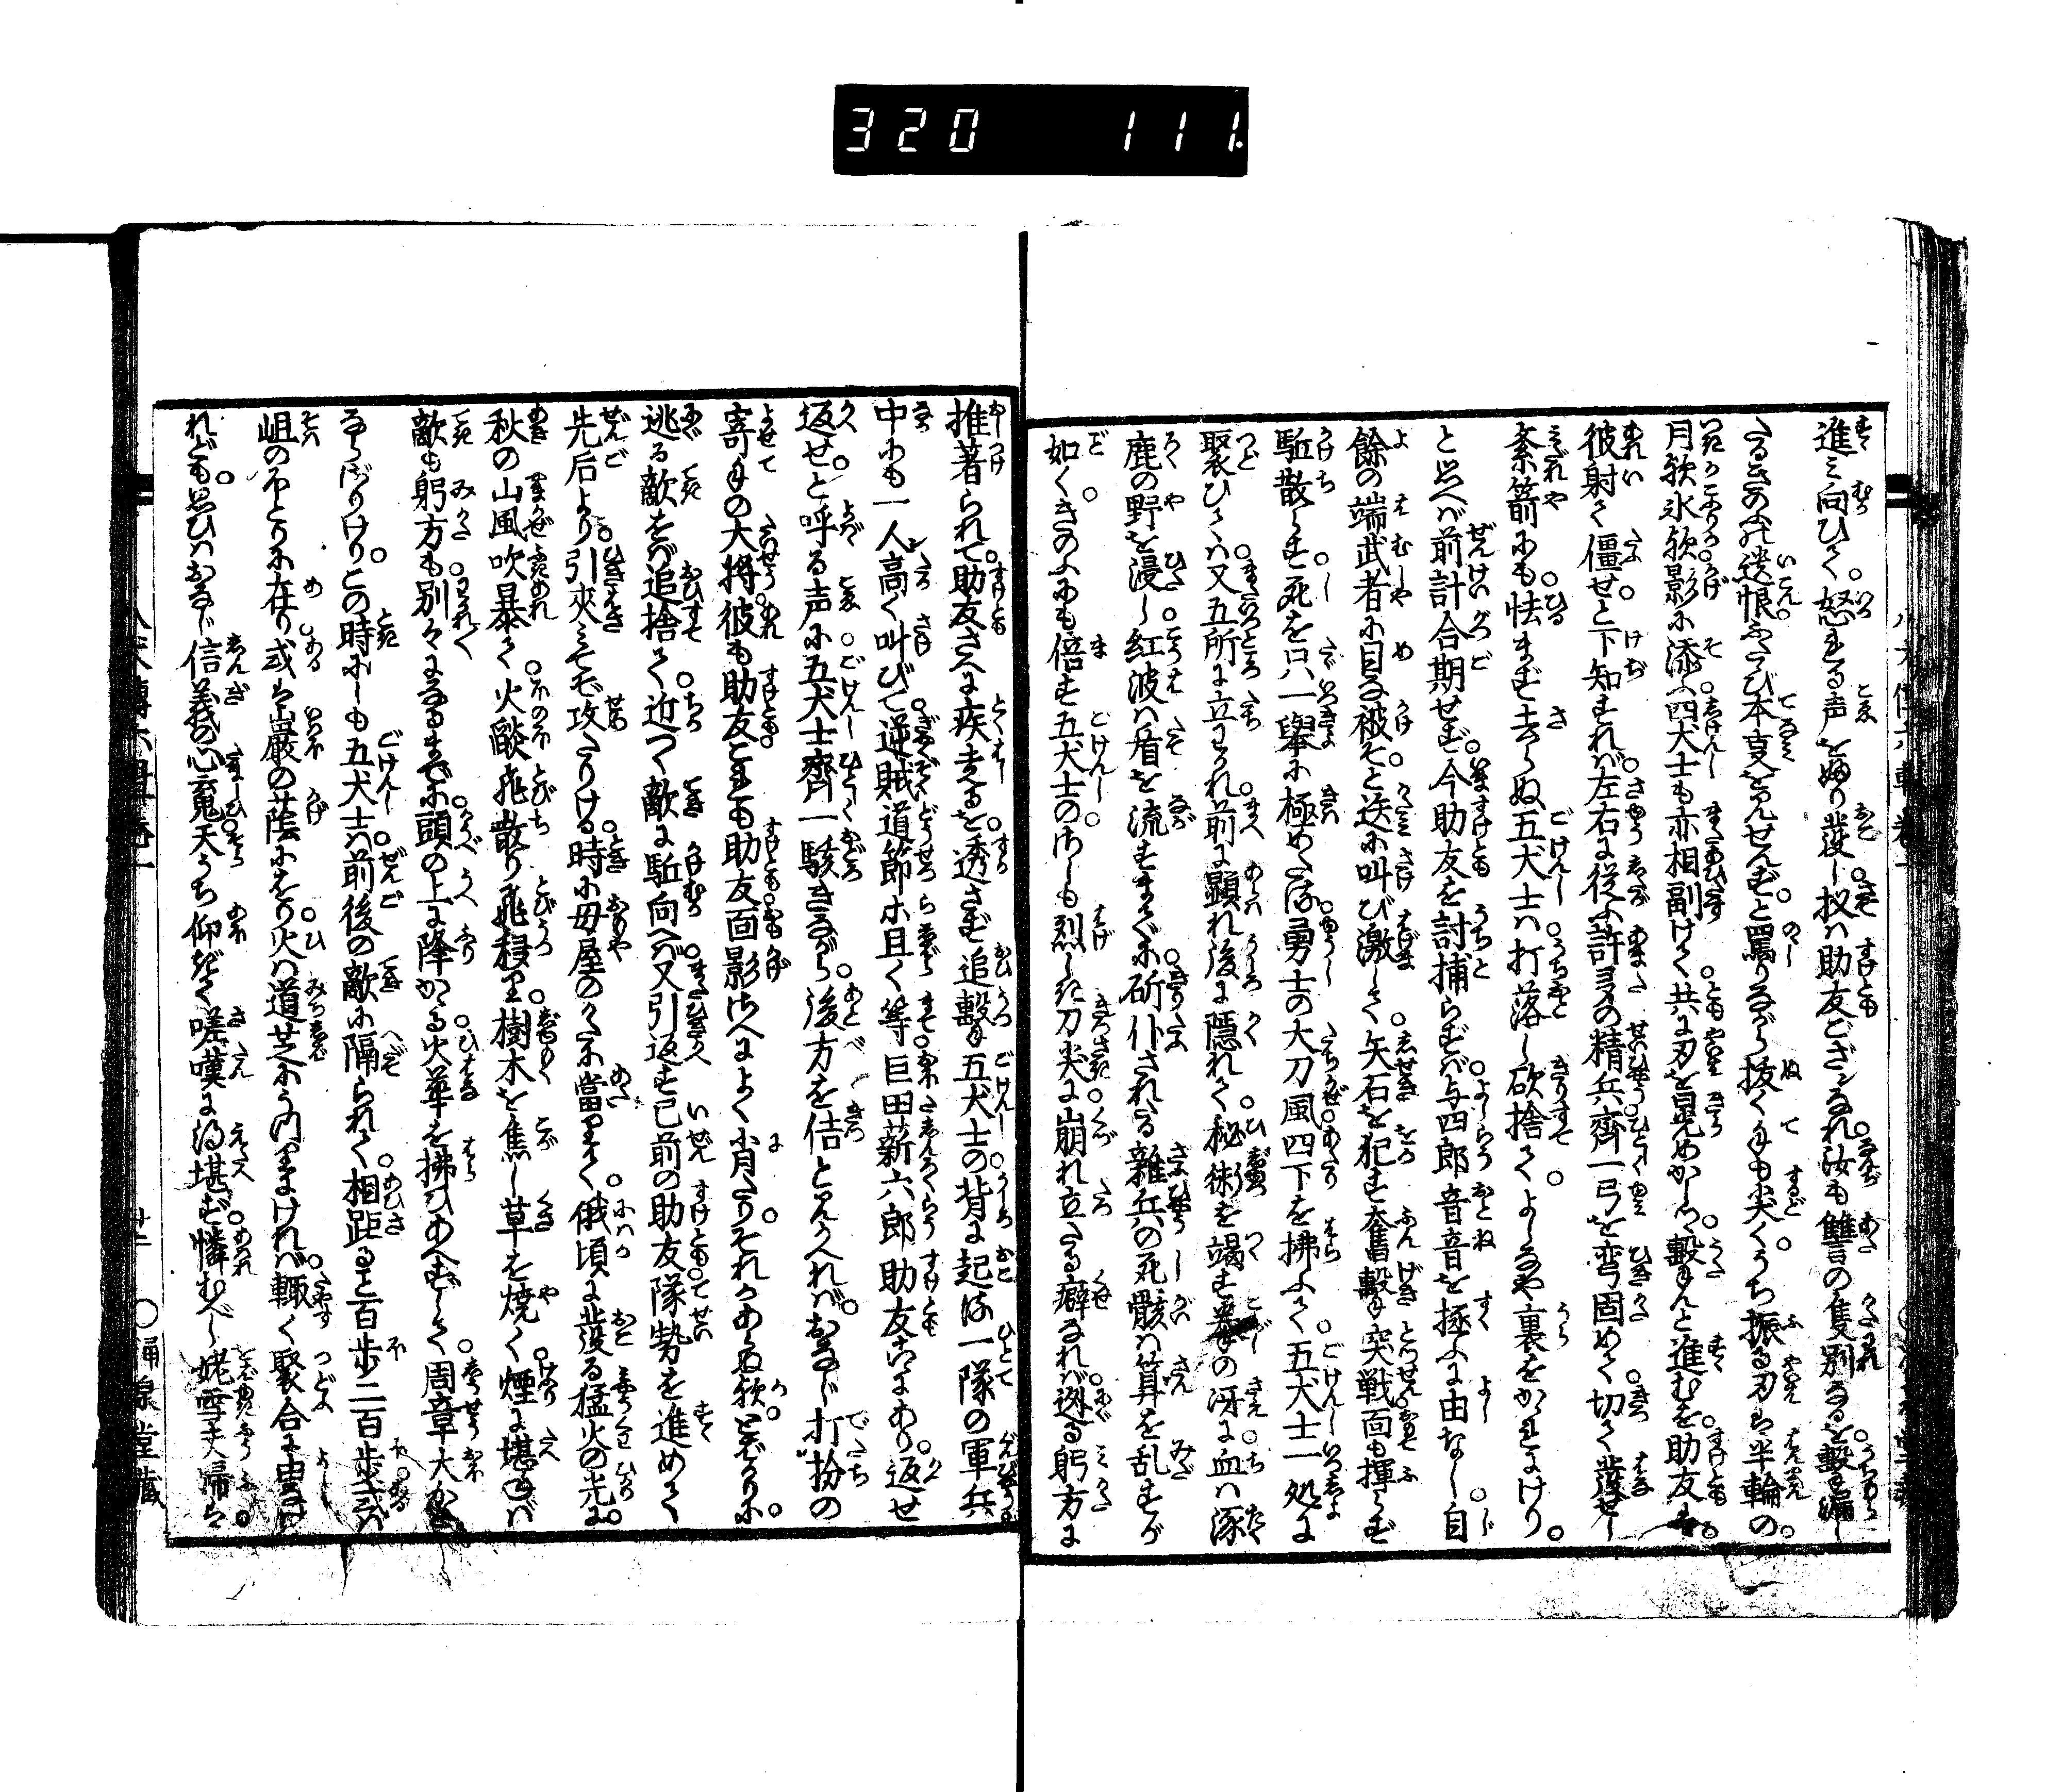 320 111.
進み向ひて怒れる声をふり發し扨は助友ござんなれ汝も讐の隻別なるを撃も漏し
たるきのふの遺恨ふたゝび本事を見せんずと罵りながら抜く手も尖くうち振る刃は半輪の
月歟氷歟影に添ふ四犬士も亦相副けて共に刃を晃めかしつゝ撃んと進むを助友は
彼射て僵せと下知すれば左右に從ふ許多の精兵齊一弓を弯固めて切て發せし
紊箭にも怯まず去らぬ五犬士は打落し砍捨てよしなや裏をかれにけり
と思へば前計合期せず今助友を討捕らずば与四郎音音を拯ふに由なし自
餘の端武者に目な被そと迭に叫び激して矢石を犯す奮撃突戦面も揮らず
駈散らす死を只一舉に極めたる勇士の大刀風四下を拂ふて五犬士一処に
聚ひては又五所に立わかれ前に顕れ後に隠れて秘術を竭す拳の冴に血は涿
鹿の野を浸し紅波は盾を流すまでに斫仆されたる雜兵の死骸は算を乱すが
如くきのふにも倍す五犬士の烈しき刀尖に崩れ立たる癖なれば迯る躬方に
推著られて助友さへに疾走るを透さず追撃す五犬士の背に起る一隊の軍兵
中にも一人高く叫びて逆賊道節ホ且く等巨田薪六郎助友こゝにあり返せ
返せと呼る声に五犬士齊一駭きながら後方を佶と見かへればおなじ打扮の
寄手の大将彼も助友これも助友面影さへによく肖たりそれかあらぬ歟とばかりに
逃る敵をば追捨て近つく敵に駈向へば又引返す已前の助友隊勢を進めて
先后より引夾みてぞ攻たりける時に母屋のかたに當りて俄頃に發る猛火の光に
秋の山風吹暴て火燄飛散り飛移り樹木を焦し草を焼く煙に堪ねば
敵も躬方も別々になるまでに頭の上に降かゝる火華を拂ひあへずして周章大かた
ならざりけりこの時にしも五犬士は前後の敵に隔られて相距ると百歩二百歩或は
岨のほとりに在り或は巖の蔭にをり火は道芝にうつりければ輙く聚合に由なけ
れども思ひはおなじ信義の心魂天うち仰ぎて嗟嘆に得堪ず憐むべし姥雪夫婦は
八犬傳六輯巻一
廿二 ○涌泉堂藏